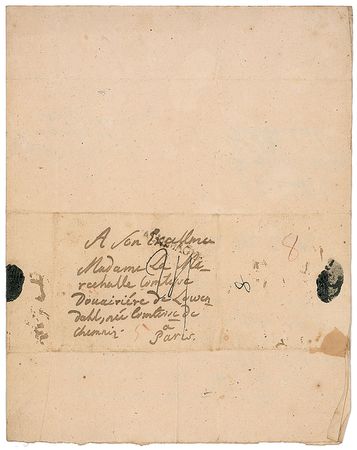 A Son Excellence
Madame la Ma-
rechalle Comtesse
Douairiére de Lowen
dahl, née Comtesse de
à
Paris.
8
8